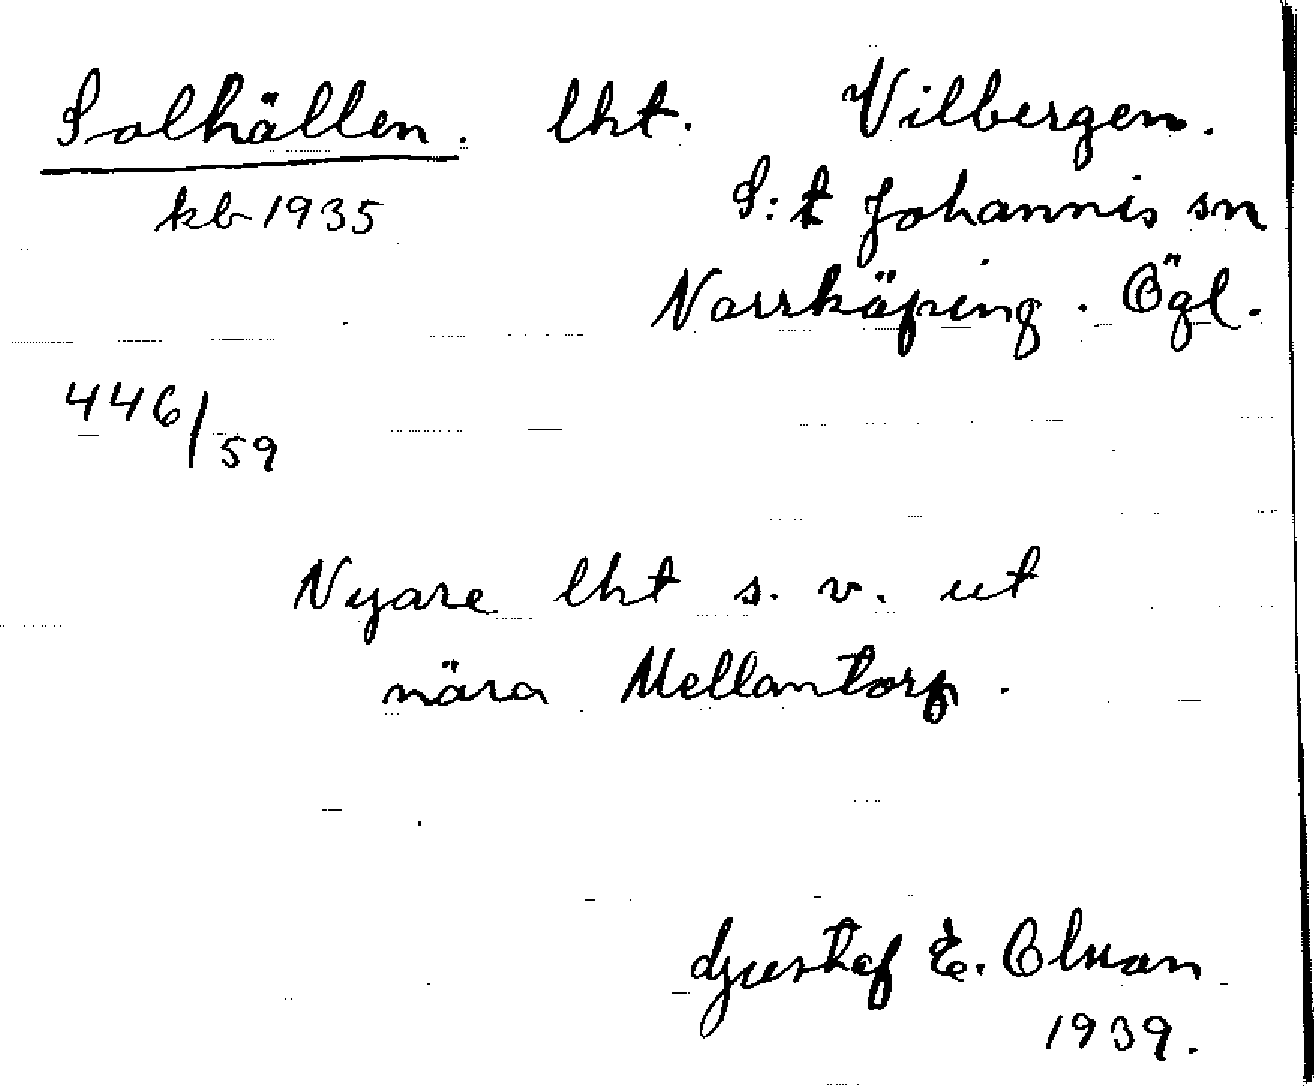 Solhällen. lht. Vilbergen.
kb 1935 S:t Johannis sn
Norrköping. Ögl.
446/59
Nyare lht s. v. ut
nära Mellantorp.
Gustaf E. Olsson
1939.